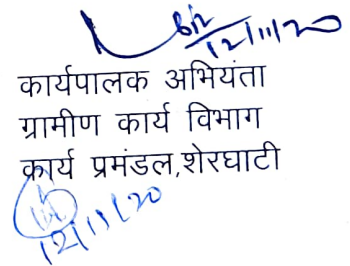 12/11/20
कार्यपालक अभियंता
ग्रामीण कार्य विभाग
कार्य प्रमंडल,शेरघाटी
12/11/20